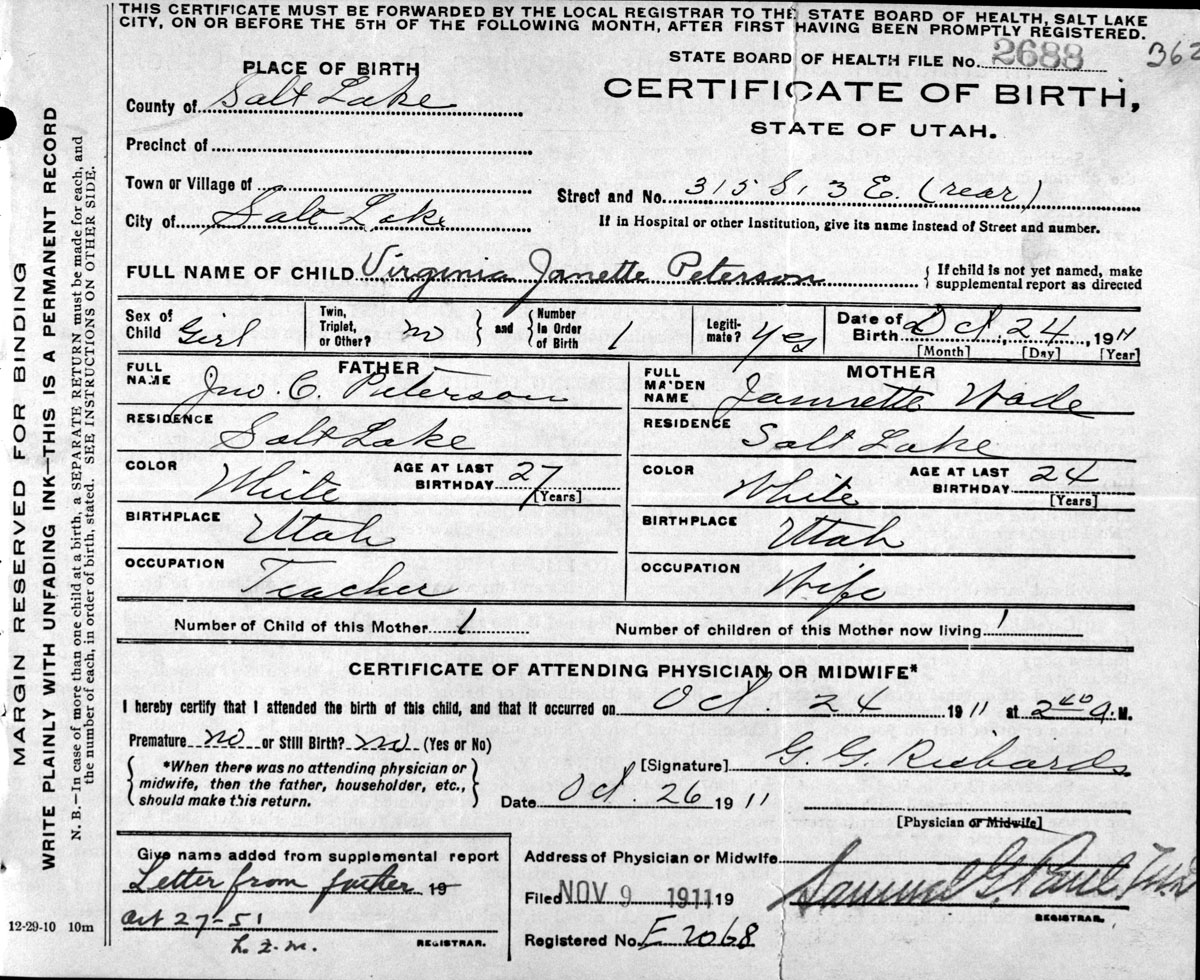 THIS CERTIFICATE MUST BE FORWARDED BY THE LOCAL REGISTRAR TO THE STATE BOARD OF HEALTH, SALT LAKE
CITY, ON OR BEFORE THE 5TH OF THE FOLLOWING MONTH, AFTER FIRST HAVING BEEN PROMPTLY REGISTERED.
MARGIN RESERVED FOR BINDING
WRITE PLAINLY WITH UNFADING INK—THIS IS A PERMANENT RECORD
N. B.—In case of more than one child at a birth, a SEPARATE RETURN must be made for each, and
the number of each, in order of birth, stated. SEE INSTRUCTIONS ON OTHER SIDE.
STATE BOARD OF HEALTH FILE No. 2688 362
PLACE OF BIRTH
CERTIFICATE OF BIRTH,
STATE OF UTAH.
County of Salt Lake
Precinct of
Town or Village of
Street and No. 315 S. 3 E. (rear)
City of Salt Lake
If in Hospital or other Institution, give its name instead of Street and number.
FULL NAME OF CHILD Virginia Janette Peterson { If child is not yet named, make
supplemental report as directed
Sex of Child Girl Twin, Triplet, or Other? no } and { Number in Order of Birth 1 Legiti-mate? Yes Date of Birth Oct, 24, 1911
[Month] [Day] [Year]
FATHER
FULL NAME Jno. C. Peterson
RESIDENCE Salt Lake
COLOR White AGE AT LAST BIRTHDAY 27 [Years]
BIRTHPLACE Utah
OCCUPATION Teacher
MOTHER
FULL MAIDEN NAME Jannette Wade
RESIDENCE Salt Lake
COLOR White AGE AT LAST BIRTHDAY 24 [Years]
BIRTHPLACE Utah
OCCUPATION Wife
Number of Child of this Mother 1 Number of children of this Mother now living 1
CERTIFICATE OF ATTENDING PHYSICIAN OR MIDWIFE*
I hereby certify that I attended the birth of this child, and that it occurred on Oct. 24 1911 at 2 40 a. M.
Premature no or Still Birth? no (Yes or No)
[Signature] G. G. Richards
{ *When there was no attending physician or
midwife, then the father, householder, etc.,
should make this return. }
Date Oct. 26 1911
[Physician or Midwife]
Give name added from supplemental report
Letter from father 19
Oct 27-51
REGISTRAR.
Address of Physician or Midwife
Filed NOV 9 1911 19 Samuel G. Paul
REGISTRAR.
Registered No. E 2068
12-29-10 10m